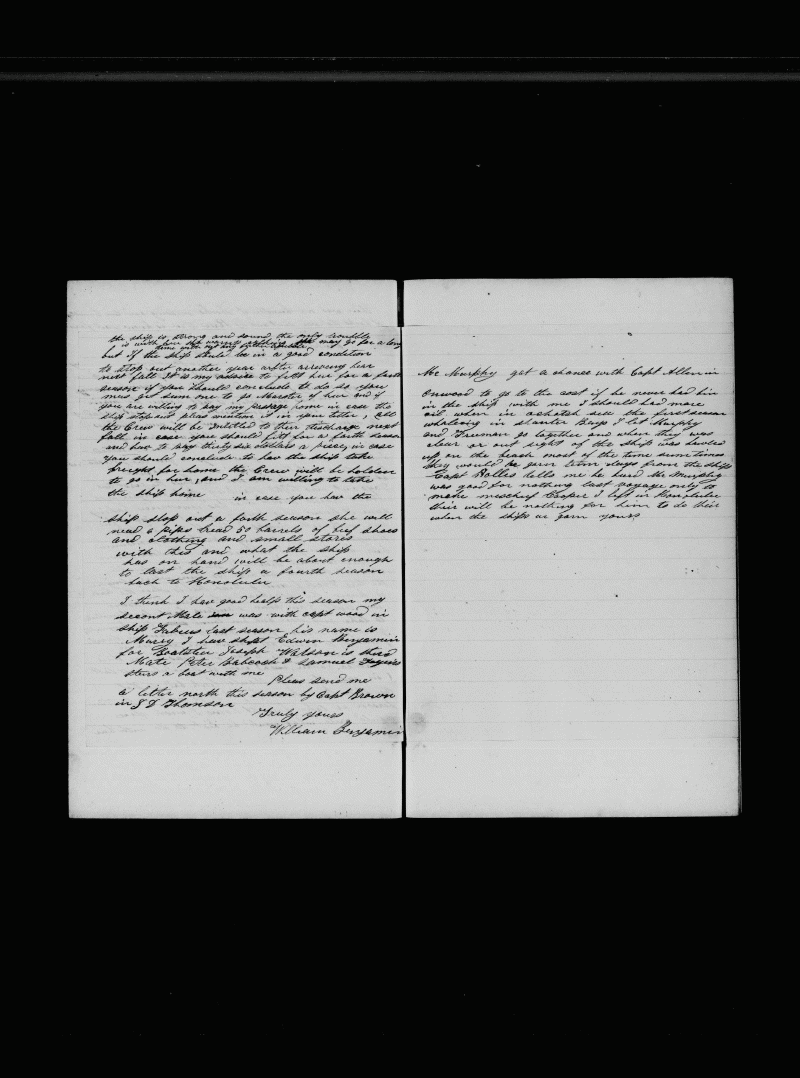 the ship is strong and sound the only trouble
is with her
time with out any great trouble may go for a long
but if the ship should be in a good condition
to stop out another year after arriving hear
next fall It is my advise to fitt her for a forth
season if you should conclude to do so you
must get sum one to go Marster of her and if
you are willing to pay my passage home in case the
ship stop out pleas mention it in your letter, All
the Crew will be intitled to their discharge next
fall in case you should fitt for a forth season
and have to pay thirty six dollars a piece, in case
you should conclude to have the ship take
freight for home the Crew will be holden
to go in her, and I am willing to take
the ship home in case you have the
ship stop out a forth season she will
need 6 pipes bread 50 barrels of beef shoes
and clothing and small stores
with this and what the ship
has on hand will be about enough
to last the ship a fourth season
back to Honolulu
I think I have good helps this season my
second Mate was with capt wood in
ship Fabius last season his name is
Murry I have shipt Edwin Benjamin
for Boatstier Joseph Watson is third
Mate Peter Babcock & Samuel
stears a boat with me Pleas send me
a letter north this season by Capt Brown
in J D Thomson
Truly yours
William Benjamin
Mc Murphy got a chance with Capt Allen in
Onward to go to the coat if he never had bin
in the ship with me I should had more
oil when in ochotsk sea the first season
whaleing in shanter Bays I let Murphy
and Freeman go together and when they was
clear or out sight of the ship was hawled
up on the beach most of the time sum times
they would be gorn ten days from the ship
Capt Bolles tells me he heard Mc Murphy
was good for nothing last voyage only to
make mischief Cooper I left in Honolulu
their will be nothing for him to do their
when the ships ar gorn yours